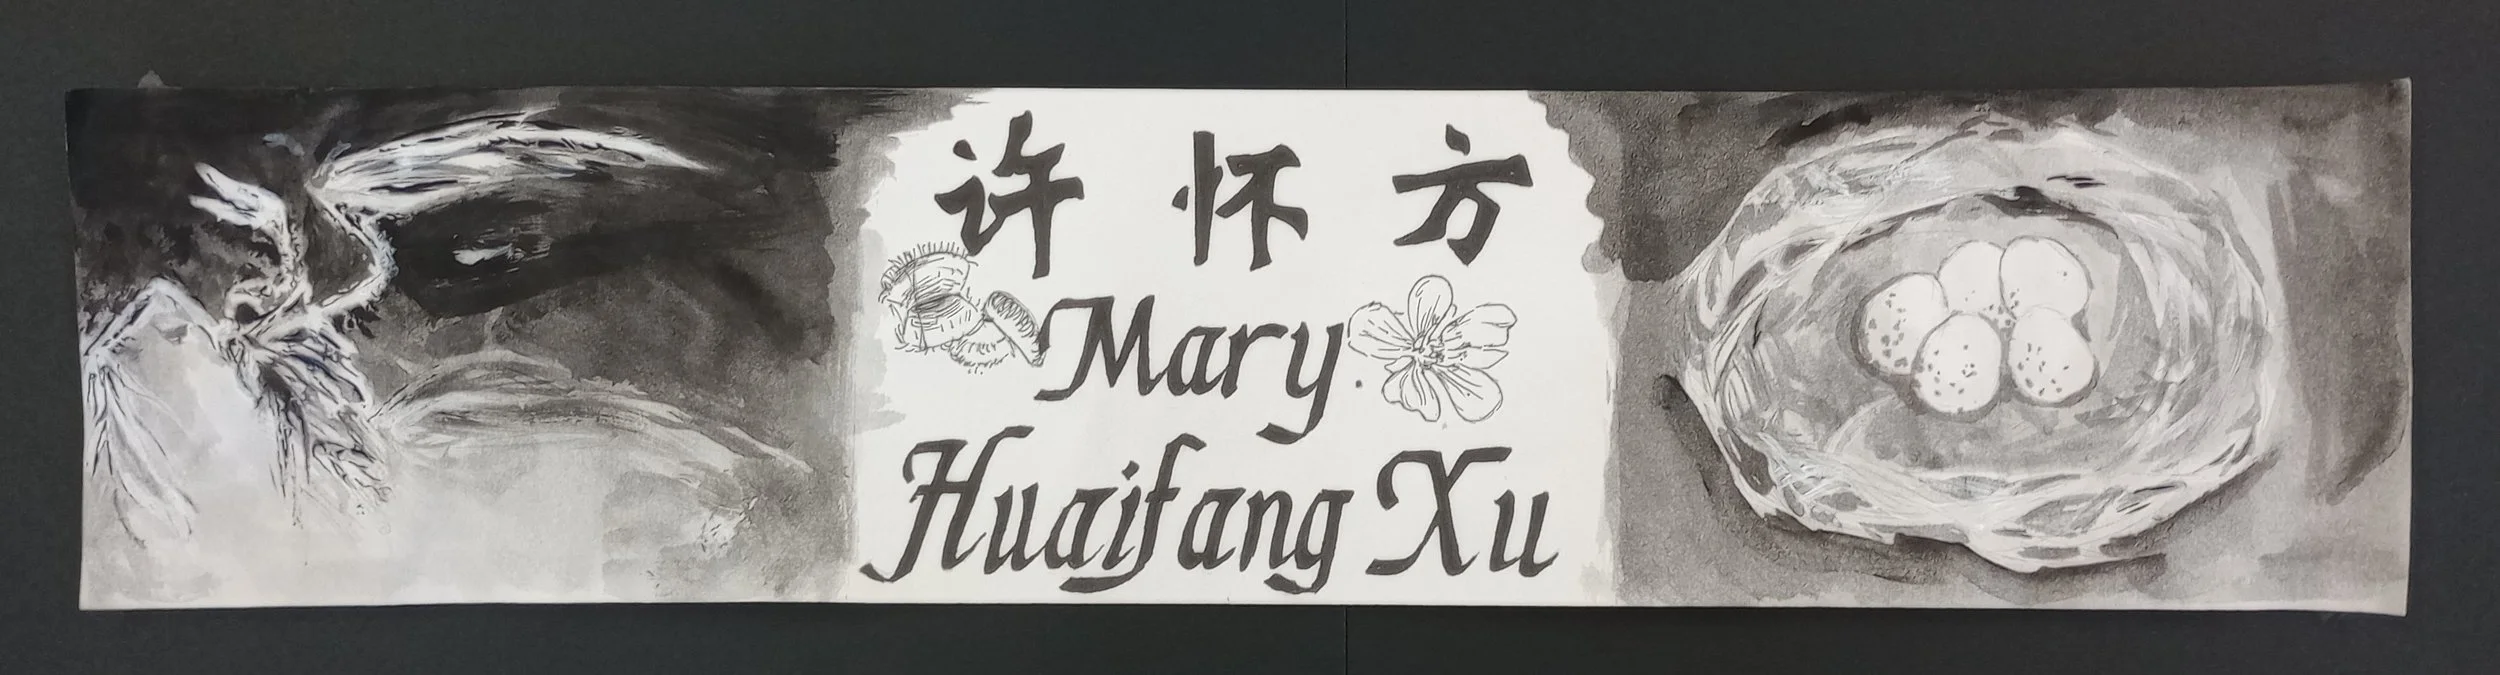 许怀方
Mary
Huaifang Xu